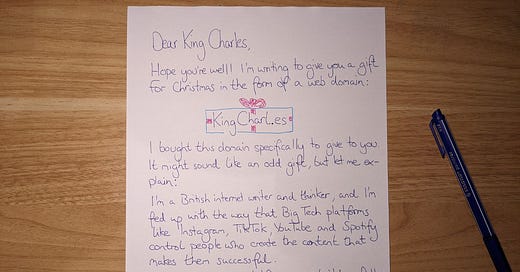 Dear King Charles,
Hope you're well! I'm writing to give you a gift
for Christmas in the form of a web domain:
KingCharl.es
I bought this domain specifically to give to you.
It might sound like an odd gift, but let me ex-
plain:
I'm a British internet writer and thinker, and I'm
fed up with the way that Big Tech platforms
like Instagram, TikTok, YouTube and Spotify
control people who create the content that
makes them successful.